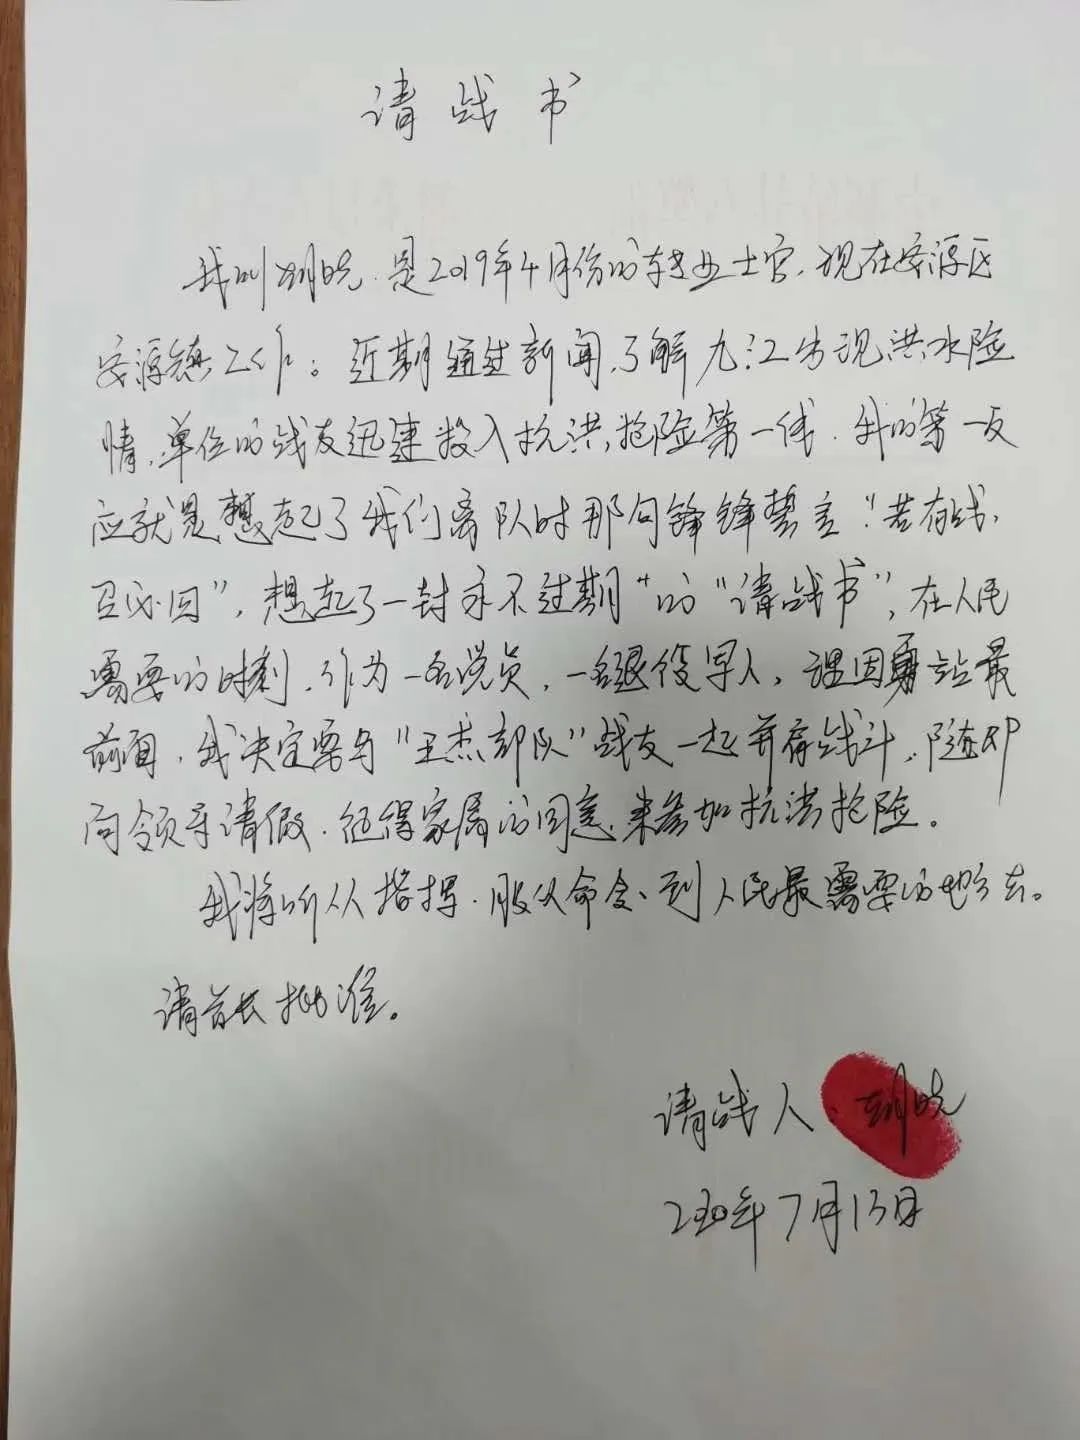 请战书
我叫胡皓，是2019年4月份的转业士官，现在安源区
安源镇工作。近期通过新闻，了解九江出现洪水险
情，单位的战友迅速投入抗洪抢险第一线，我的第一反
应就是想起了我们离队时那句铮铮誓言“若有战，
召必回”，想起了一封永不过期“的“请战书”，在人民
需要的时刻，作为一名党员，一名退役军人，理因勇站最
前面，我决定要与“王杰部队”战友一起并肩战斗，随即
向领导请假，征得家属的同意，来参加抗洪抢险。
我将听从指挥，服从命令，到人民最需要的地方去。
请首长批准。
请战人：胡皓
2020年7月13日